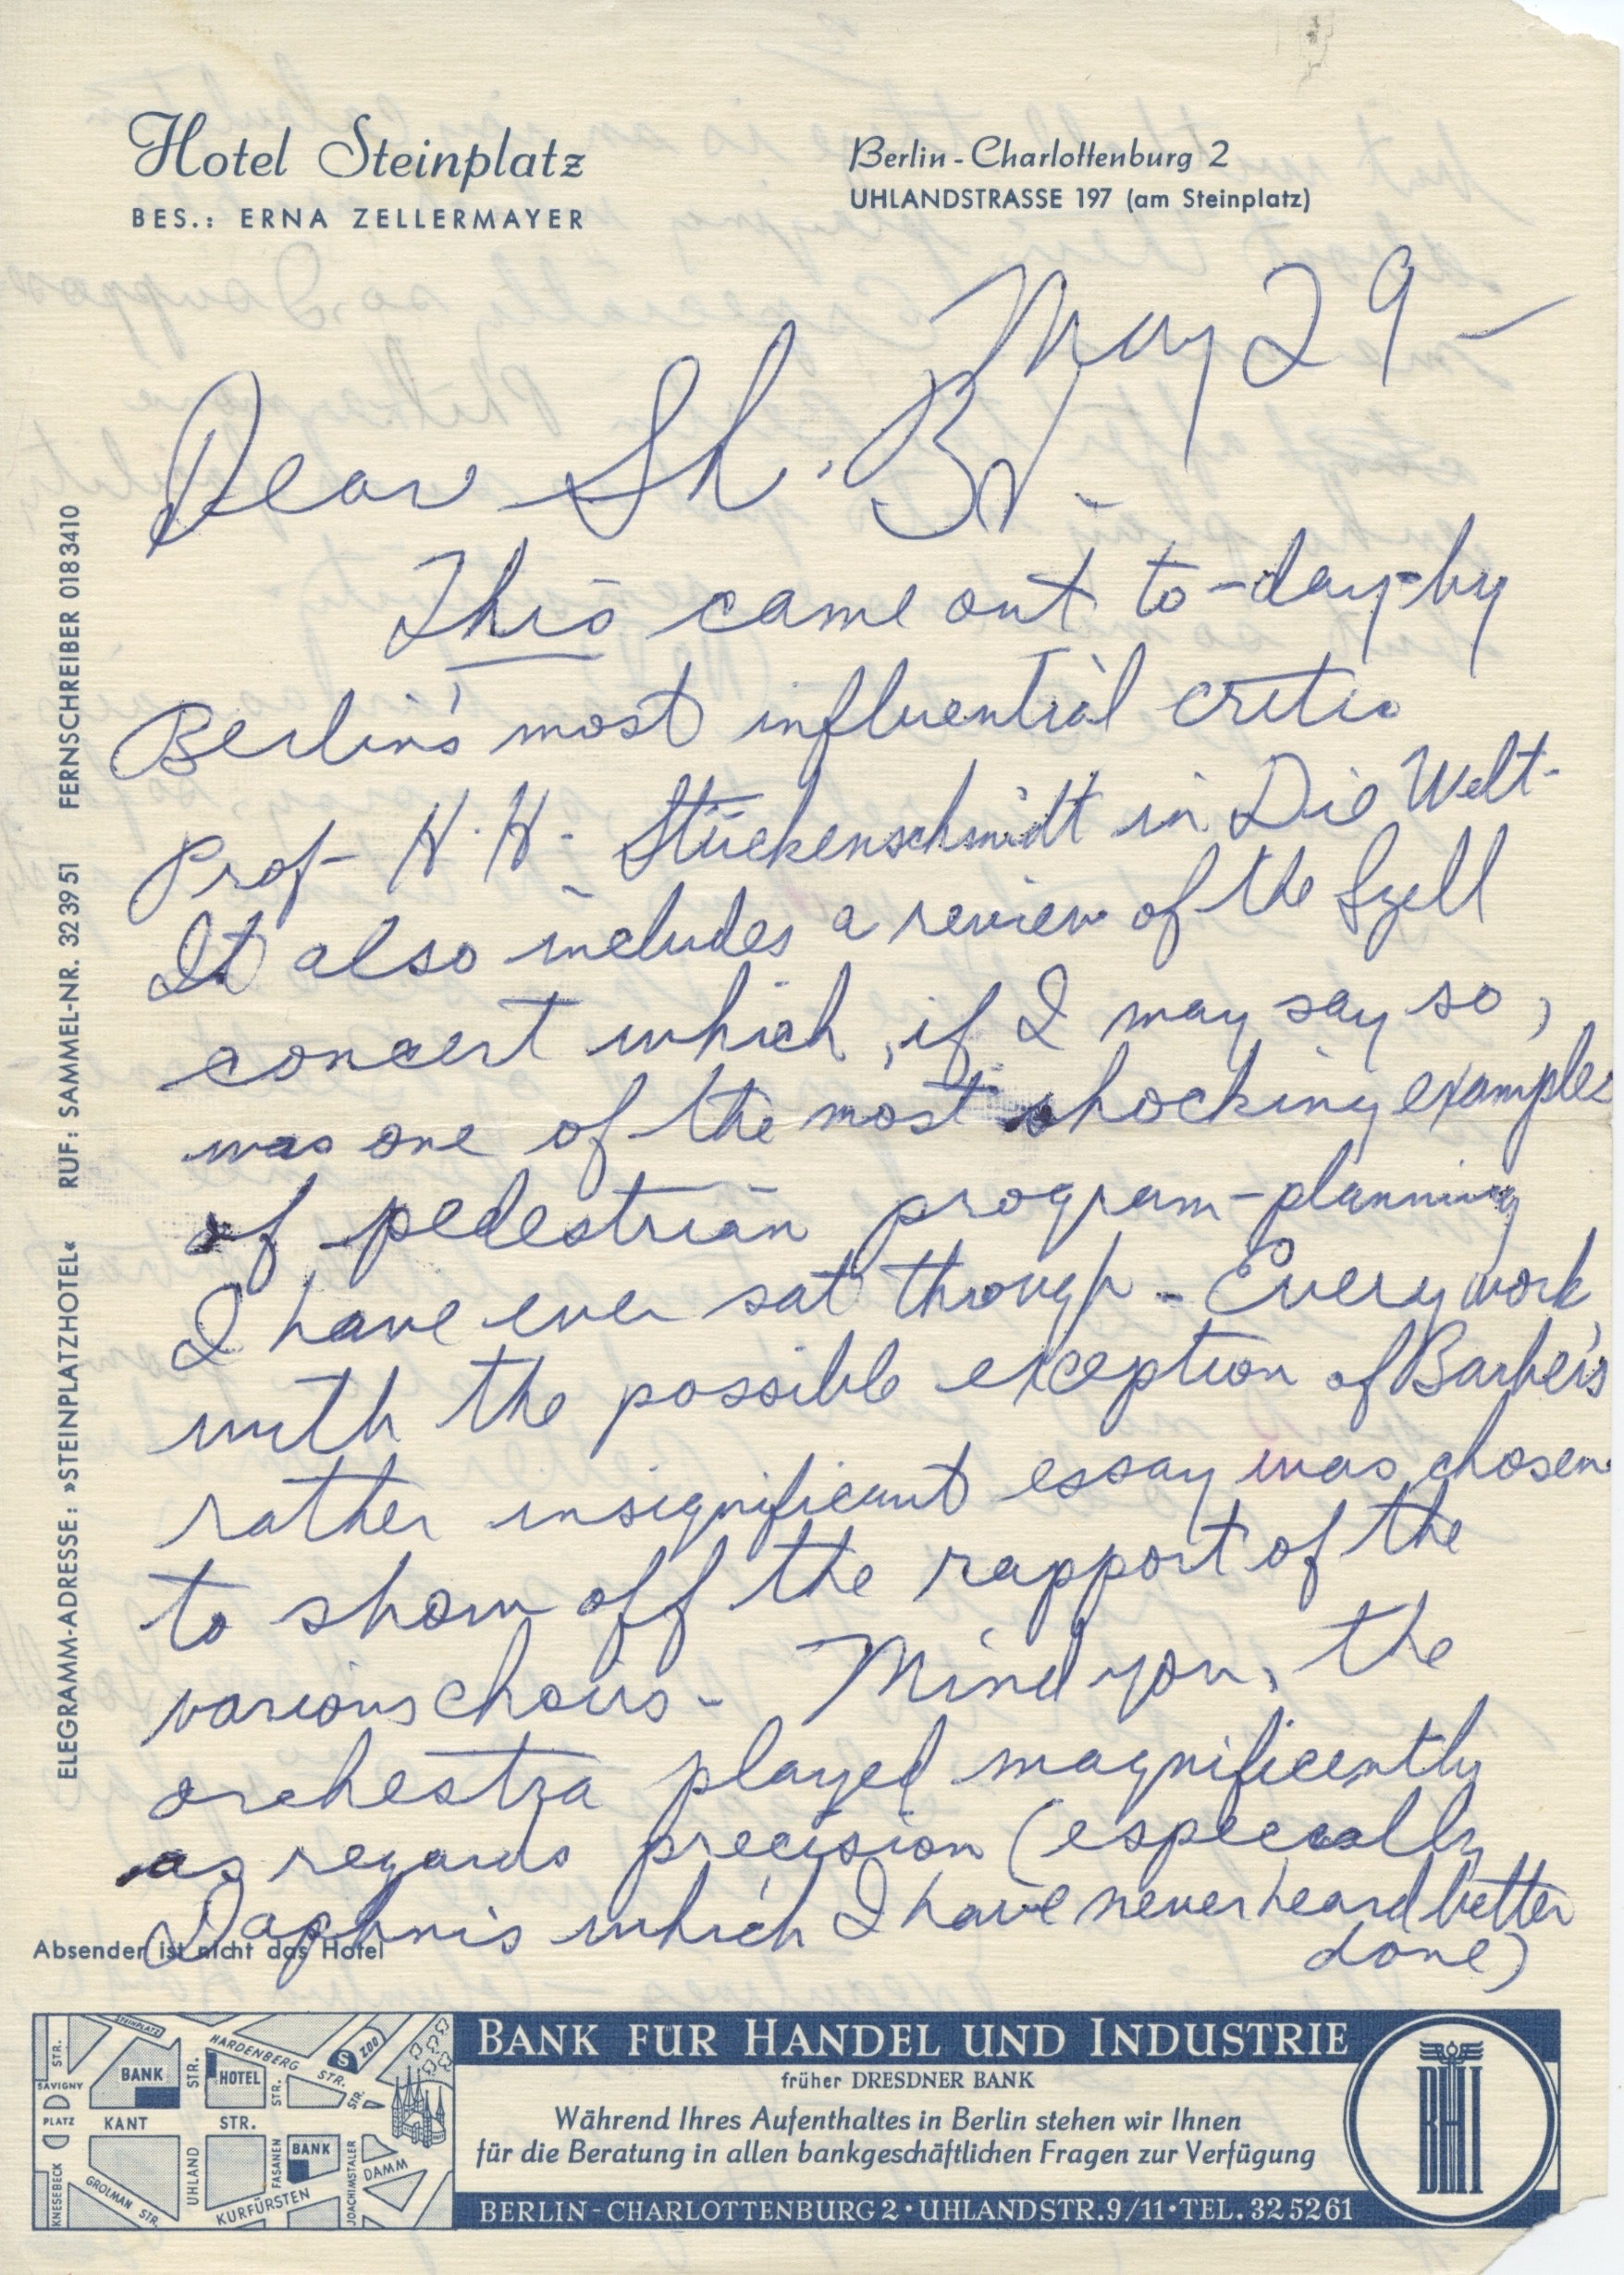 Hotel Steinplatz
BES.: ERNA ZELLERMAYER
Berlin-Charlottenburg 2
UHLANDSTRASSE 197 (am Steinplatz)
May 29 –
Dear Sh. Br –
This came out to-day-by
Berlin's most influential critic
Prof H. H. Stückenschmidt in Die Welt-
It also includes a review of the Szell
concert which, if I may say so,
was one of the most shocking examples
of pedestrian program-planning
I have ever sat through - Every work
with the possible exception of Barber's
rather insignificant essay was chosen
to show off the rapport of the
various choirs - Mind you, the
orchestra played magnificently
as regards precision (especially
Daphnis which I have never heard better
done)
ELEGRAMM-ADRESSE: »STEINPLATZHOTEL« RUF: SAMMEL-NR. 32 39 51 FERNSCHREIBER 0183410
Absender ist nicht das Hotel
STEINPLATZ
HARDENBERG
STR.
S ZOO
STR.
BANK
STR.
HOTEL
STR.
STR.
SAVIGNY
PLATZ
KANT STR.
KNESEBECK
GROLMAN STR.
UHLAND
FASANEN
BANK
JOACHIMSTALER
KURFÜRSTEN
DAMM
BANK FÜR HANDEL UND INDUSTRIE
früher DRESDNER BANK
Während Ihres Aufenthaltes in Berlin stehen wir Ihnen
für die Beratung in allen bankgeschäftlichen Fragen zur Verfügung
BERLIN-CHARLOTTENBURG 2 • UHLANDSTR. 9/11 • TEL. 32 52 61
BHI